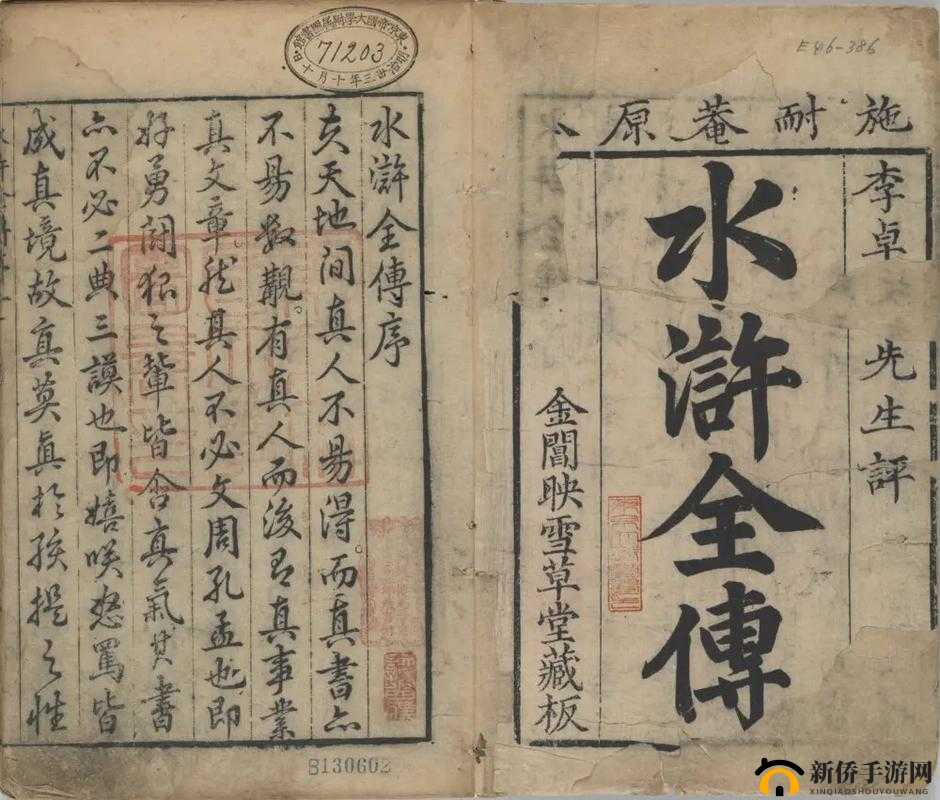 施耐菴原
李卓
先生評
水滸全傳
金閶映雪草堂藏板
E46-386
水滸全傳序
夫天地間真人不易得而真書亦
不易數觀。有真人而後有真事業
真文章。然其人不必文周孔孟也即
好勇鬪狠之輩皆含真氣其書
亦不必二典三謨也即嬉咲怒罵皆
成真境故真莫真於孩提之性
東京帝國大學附屬圖書館
71203
明治卅三年十月十日
8130602
新侨手游网
XINQIAOSHOUYOUWANG